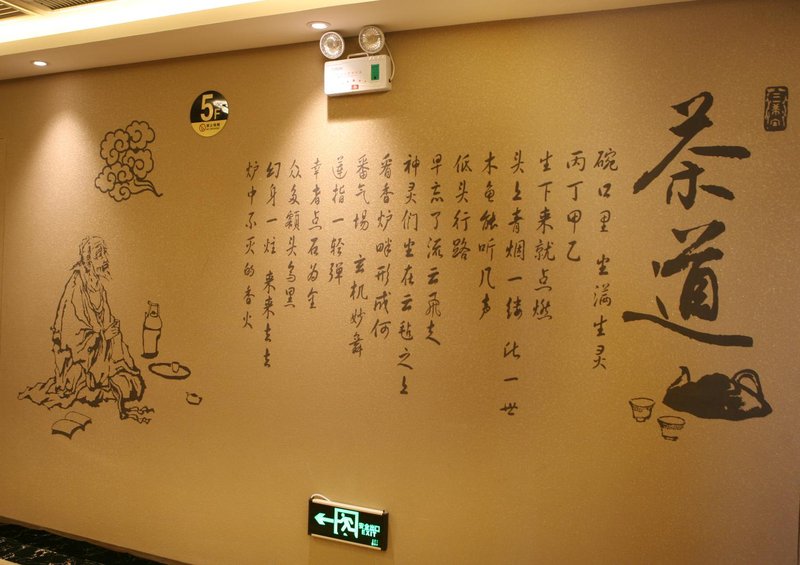 茶道
碗口里 坐满生灵
丙丁甲乙
坐下来就点燃
头上青烟一缕 比一世
木鱼能听几声
低头行路
早忘了流云飞走
神灵们坐在云毡之上
看香炉畔形成何
番气场 玄机妙舞
莲指一轻弹
幸者点石为金
众多额头乌黑
幻身一炷 来来去去
炉中不灭的香火
5F
安全出口
EXIT